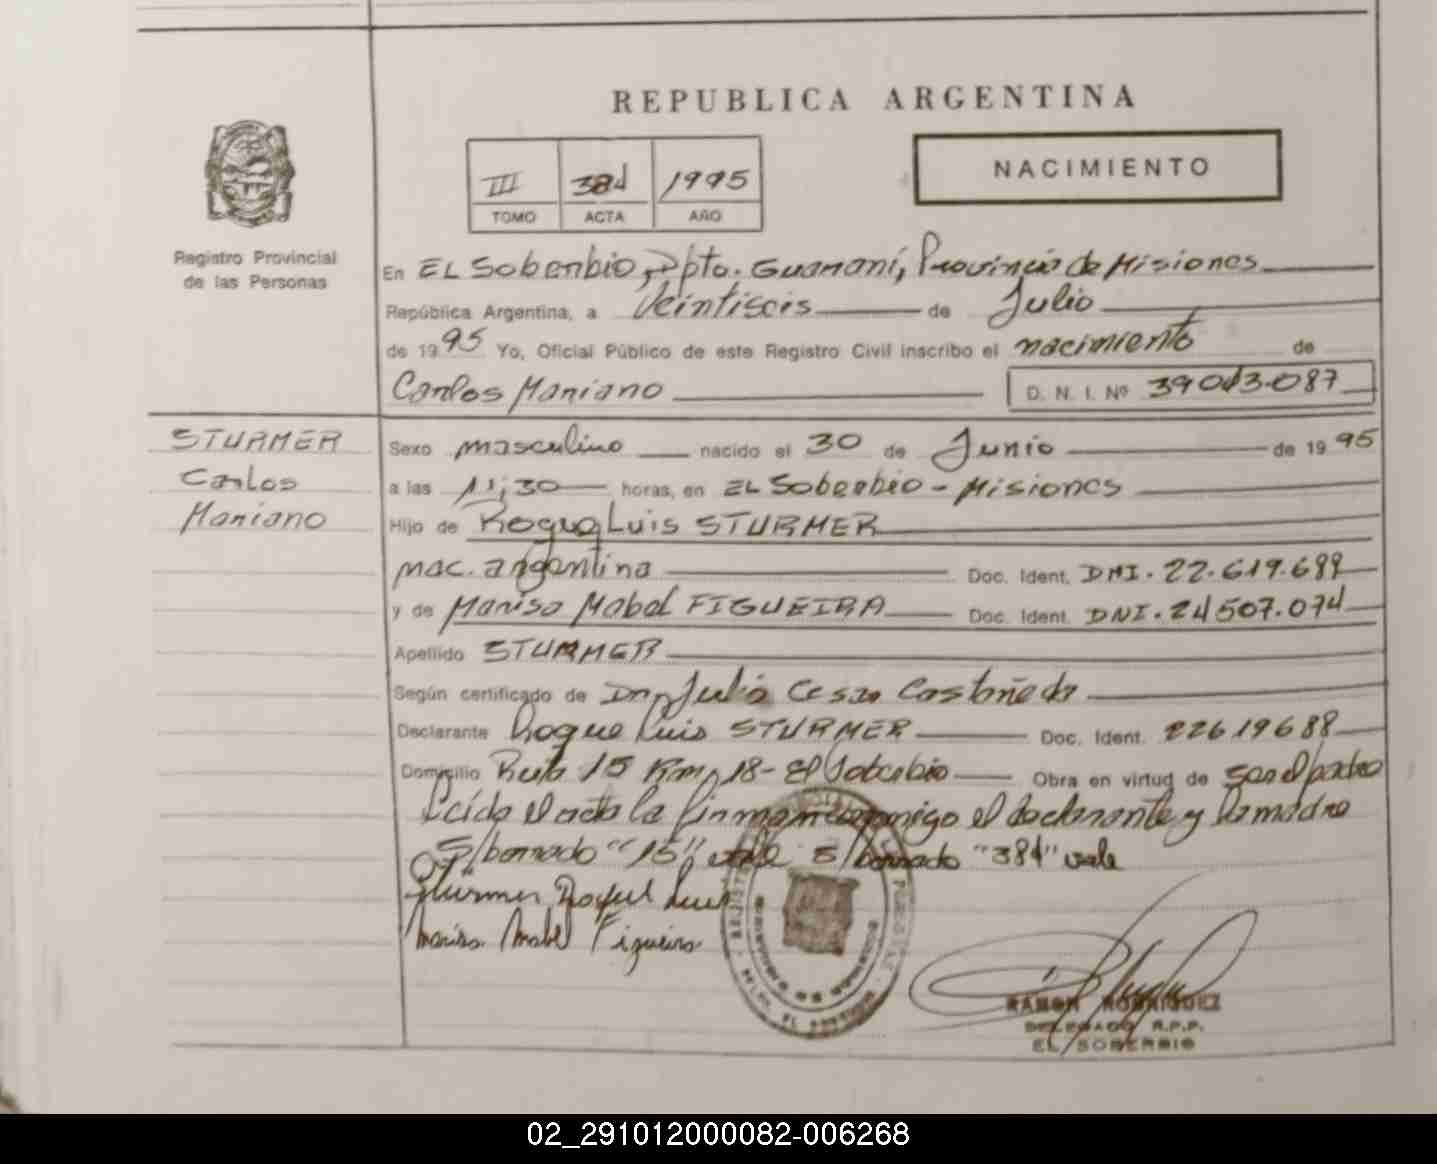 REPUBLICA ARGENTINA
III 381 1995
TOMO ACTA AÑO
NACIMIENTO
Registro Provincial
de las Personas
En EL Soberbio, Dpto. Guaraní, Provincia de Misiones
República Argentina, a Veintiseis de Julio
de 1995 Yo, Oficial Público de este Registro Civil inscribo el nacimiento de
Carlos Mariano D. N. I. Nº 39.043.087
STURMER
Carlos
Mariano
Sexo masculino nacido el 30 de Junio de 1995
a las 11,30 horas, en EL Soberbio - Misiones
Hijo de Roque Luis STURMER
nac. argentina Doc. Ident. DNI. 22.619.688
y de Marisa Mabel FIGUEIRA Doc. Ident. DNI. 24507.074
Apellido STURMER
Según certificado de Dr. Julio Cesar Castañeda
Declarante Roque Luis STURMER Doc. Ident. 22619688
Domicilio Ruta 15 Km. 18- El Soberbio Obra en virtud de ser el padre
Leida el acta la firman conmigo el declarante y la madre
S/borrado "15" vale S/borrado "381" vale
Sturmer Roque Luis
Marisa Mabel Figueira
RAMON RODRIGUEZ
DELEGADO R.P.P.
EL SOBERBIO
02_291012000082-006268